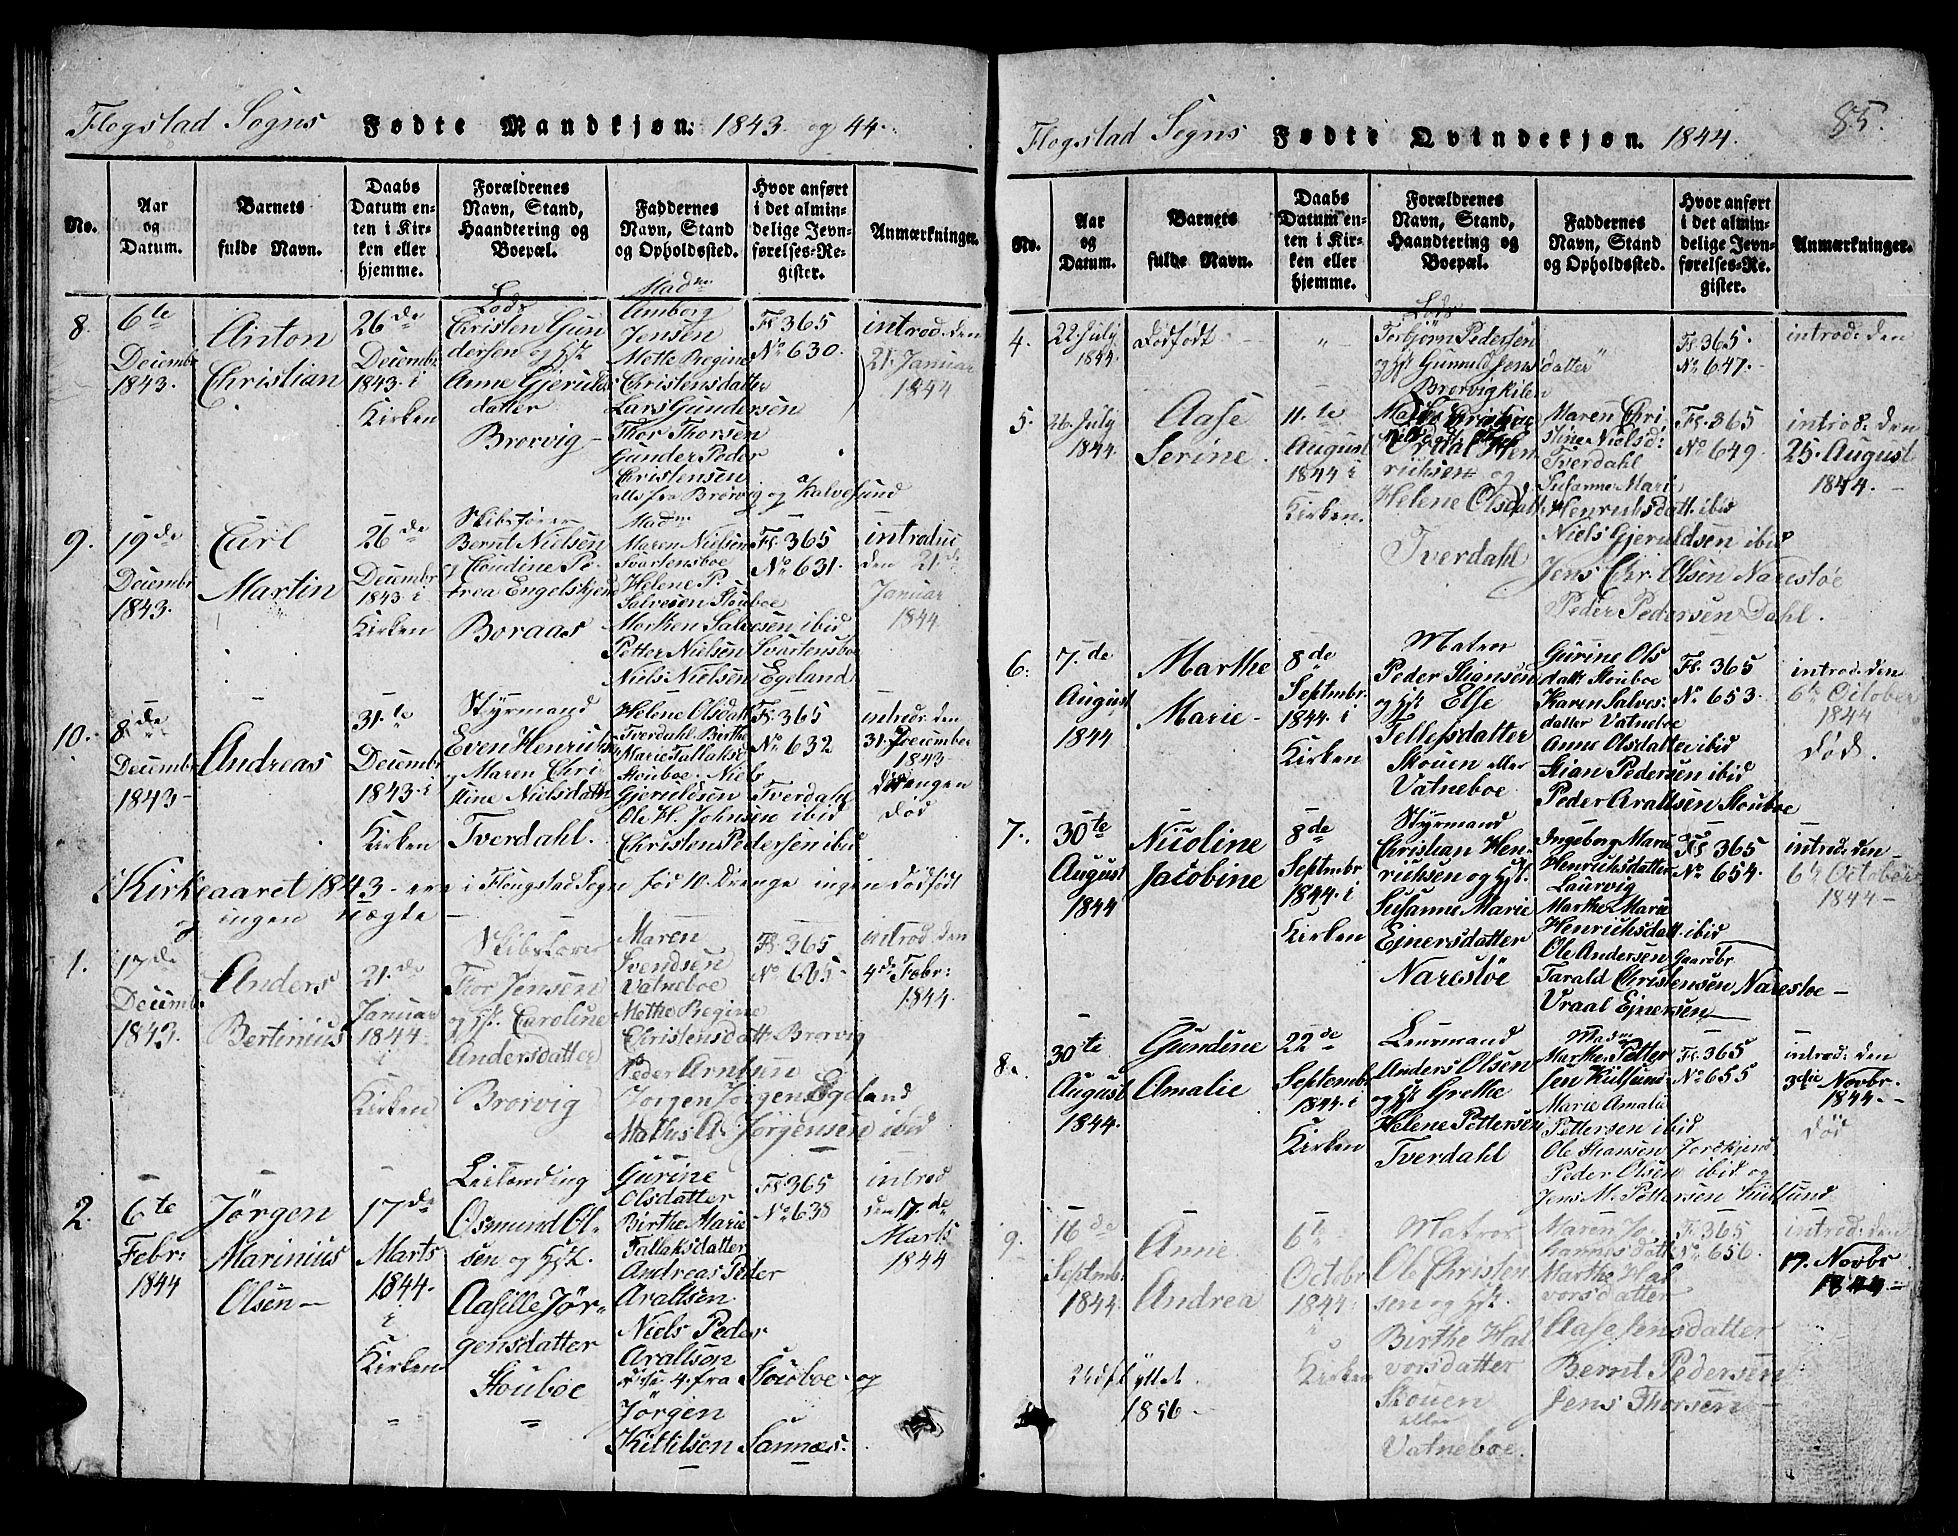 Flogstad Sogns Fødte Mandkjøn: 1843. og 44.
No.
Aar
og
Datum.
Barnets
fulde Navn.
Daabs
Datum en-
ten i Kir-
ken eller
hjemme.
Forældrenes
Navn, Stand,
Haandtering og
Boepæl.
Faddernes
Navn, Stand
og Opholdssted.
Hvor anført
i det almin-
delige Jevn-
førelses-Re-
gister.
Anmærkninger.
8.
6te
Decembr
1843.
Anton
Christian
26de
Decembr
1843. i
Kirken
Lods
Christen Gun
dersen og Hst.
Anne Gjeruld
datter
Brørvig
Madm
Amborg
Jensen
Mette Regine
Christensdatter
Lars Gundersen
Thor Thorsen
Gunder Peder
Christensen
alle fra Brørvig og Kalvesund
Fl 365
No 630.
introd. den
21. Januar
1844
9.
19de
Decembr
1843.
Carl
Martin
26de
Decembr
1843. i
Kirken
Skibsfører
Bernt Nielsen
og Claudine Pe-
trea Engelskjen
Boraas
Madm
Maren Nielsen
Svartensboe
Helene P.
Salvesen Stouboe
Morten Salvesen ibid
Petter Nielsen Svartensboe
Niels Nielsen Egeland
Fl 365
No 631.
introduc
den 21de
Januar
1844
10.
8de
Decembr
1843
Andreas
31.te
Decembr
1843. i
Kirken
Styrmand
Even Henrichs
og Maren Chri
stine Nielsdatt
Tverdahl.
Helene Olsdatt
Tverdahl Birthe
Marie Tallaksd
Stouboe. Niels
Gjeruldsen Tverdahl
Ole H. Johnsen ibid
Christen Pedersen ibid
Fl 365
No 632
introd. den
31. December
1843
drengen
død
I Kirkeaaret 1843 ere i Flougstad Sogn fød 10 Drenge ingen dødfødt
og ingen uægte
1.
17de
Decembr
1843.
Anders
Bertinius
21.de
Januar
1844
i
Kirken
Skibsfører
Thor Jensen
og Hst. Caroline
Andersdatter
Brørvig
Maren
Svendsen
Vatneboe
Methe Regine
Christensdatt. Brørvig
Peder Arntsen
Jørgen Jørgens Egeland
Mathis A. Jørgensen ibid
Fl. 365
No 635
introd. den
4de Febr:
1844.
2.
6te
Febr:
1844
Jørgen
Marinius
Olsen
17de
Marts
1844.
i
Kirken
Leilending
Osmund Ol-
sen og Hst.
Aasille Jør-
gensdatter
Stouboe
Gurine
Olsdatter
Birthe Marie
Tallaksdatter
Andreas Peder
Araltsen
Niels Peder
Araltsen
disse 4. fra Stouboe og
Jørgen
Kittilsen Sannæs.
Fl 365
No 638
introd
den 17.de
Marts
1844
85.
Flogstad Sogns Fødte Qvindekjøn. 1844.
No.
Aar
og
Datum.
Barnets
fulde Navn.
Daabs
Datum en-
ten i Kir-
ken eller
hjemme.
Forældrenes
Navn, Stand,
Haandtering og
Boepæl.
Faddernes
Navn, Stand
og Opholdssted.
Hvor anført
i det almin-
delige Jevn-
førelses-Re-
gister.
Anmærkninger.
4.
22. July
1844.
Dødfødt
Lods
Torbjørn Pedersen
og Hst Gunnild Jensdatter
Brørvigkilen
Fl 365.
No 647.
introd: den
5.
26. July
1844.
Aase
Serine.
11.te
August
1844 i
Kirken.
Hen
richsen og
Helene Olsdatt
Tverdahl
Maren Chri
stine Nielsd:
Tverdahl
Susanne Marie
Henrichsdatt. ibid
Niels Gjeruldsen ibid
Jens Chr. Olsen Narestøe
Peder Pedersen Dahl.
Fl. 365
No 649.
introd: den
25. August
1844.
6.
7.de
August
1844
Marthe
Marie
8de
Septmbr.
1844. i
Kirken
Matros
Peder Stiansen
og Hst Else
Tellefsdatter
Skouen eller
Vatneboe
Gurine Ols
datt. Stouboe
Karen Salves-
datter Vatneboe
Anne Olsdatter ibid
Stian Pedersen ibid
Peder Araltsen Stouboe
Fl. 365
No 653.
introd: den
6te October
1844
død.
7.
30te
August
1844
Nicoline
Jacobine
8de
Septmbr
1844. i
Kirken
Styrmand
Christian Hen-
richsen og Hst.
Susanne Marie
Ejnersdatter
Narestøe
Ingeborg Marie
Henrichsdatter
Laurvig
Marthe Marie
Henrichsdatt. ibid
Ole Andersen
Tarald Christensen Narestøe
Vraal Ejnersen
Fl 365
No 654.
introd: den
6te October
1844
8.
30te
August
1844.
Gundine
Amalie
22de
Septembr
1844. i
Kirken
Leurmand
Anders Olsen
og Hst Grethe
Helene Pettersen
Tverdahl
Madm
Marthe Petter
sen Kilsund
Marie Amalie
Pettersen ibid
Ole Stiansen Jordkjend
Peder Olsen ibid og
Jens M. Pettersen Kilsund
Fl. 365
No 655
introd: den
3die Novbr.
1844.
død
9.
16de
Septmbr.
1844.
Anne
Andrea
6te
Octobr
1844.
i
Kirken
Matros
Ole Christen
sen og Hst.
Birthe Hal
vorsdatter
Skouen
eller
Vatneboe.
Maren Jo-
hannesdatt.
Marthe Hal
vorsdatter
Aase Jensdatter
Bernt Pedersen
Jens Thorsen
Fl 365
No 656.
introd: den
17. Novbr
1844.
Udflyttet
1856